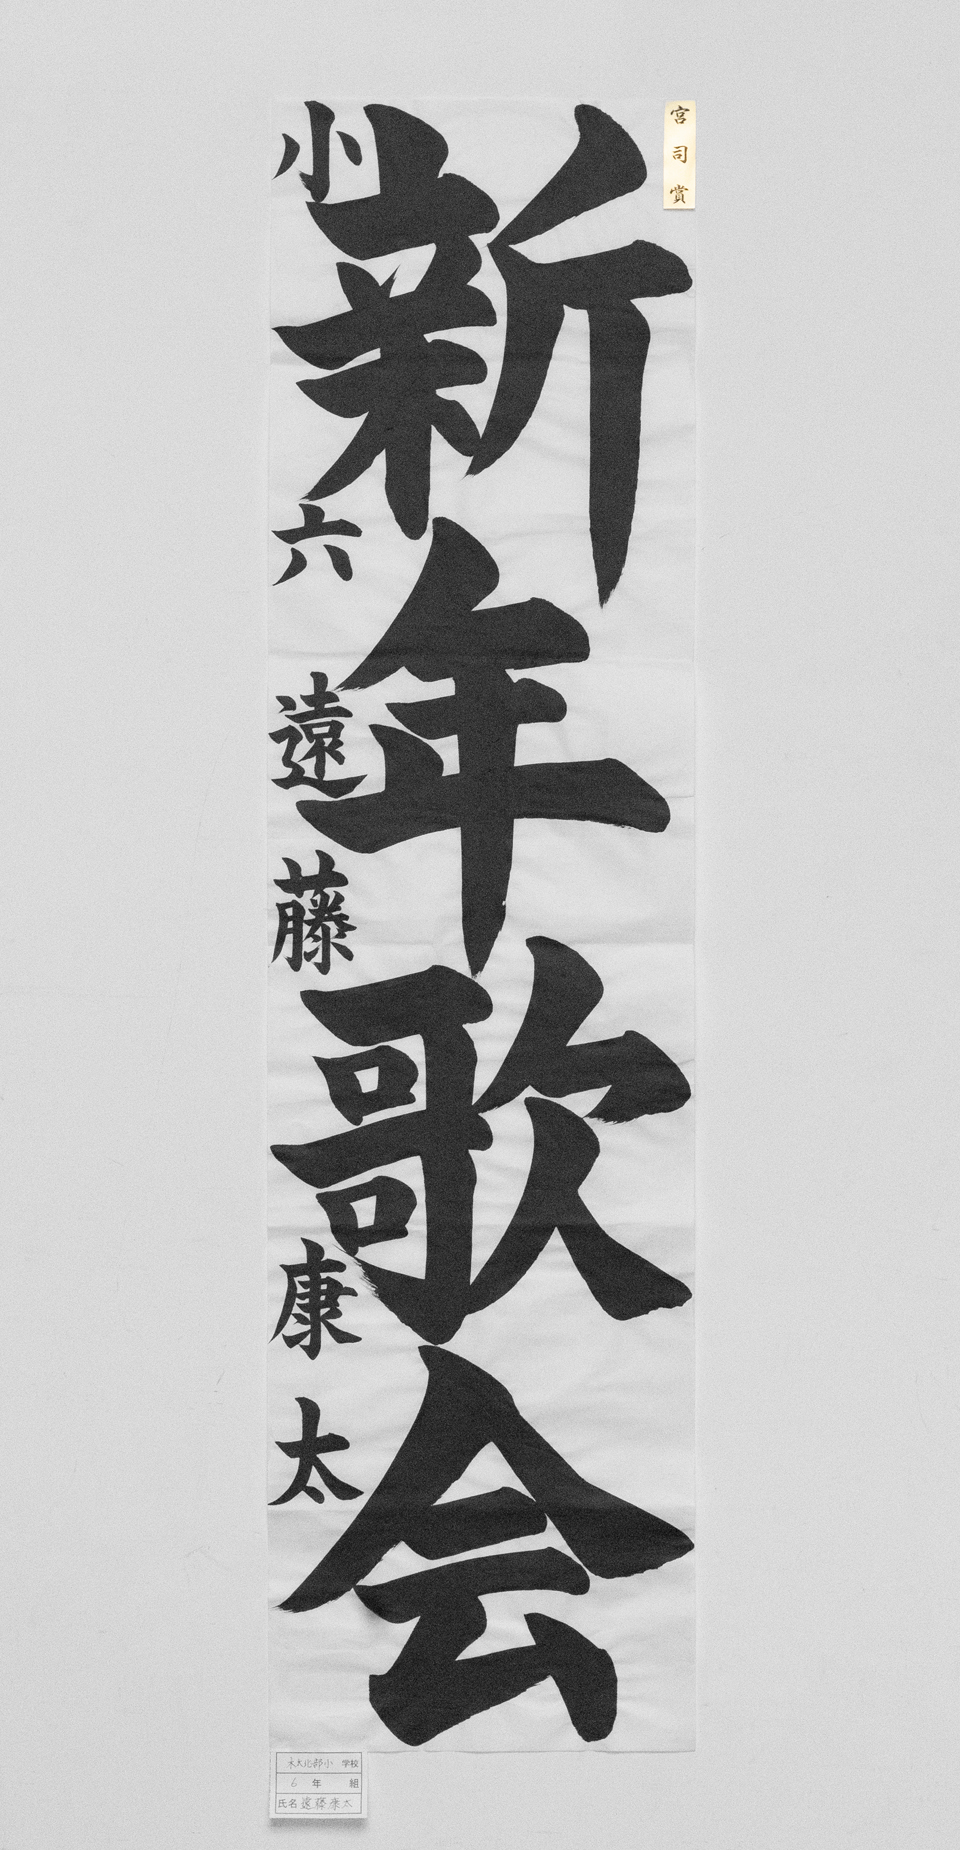 宮司賞
新年歌会
小六 遠藤康太
北部小 学校
6 年 組
氏名 遠藤康太